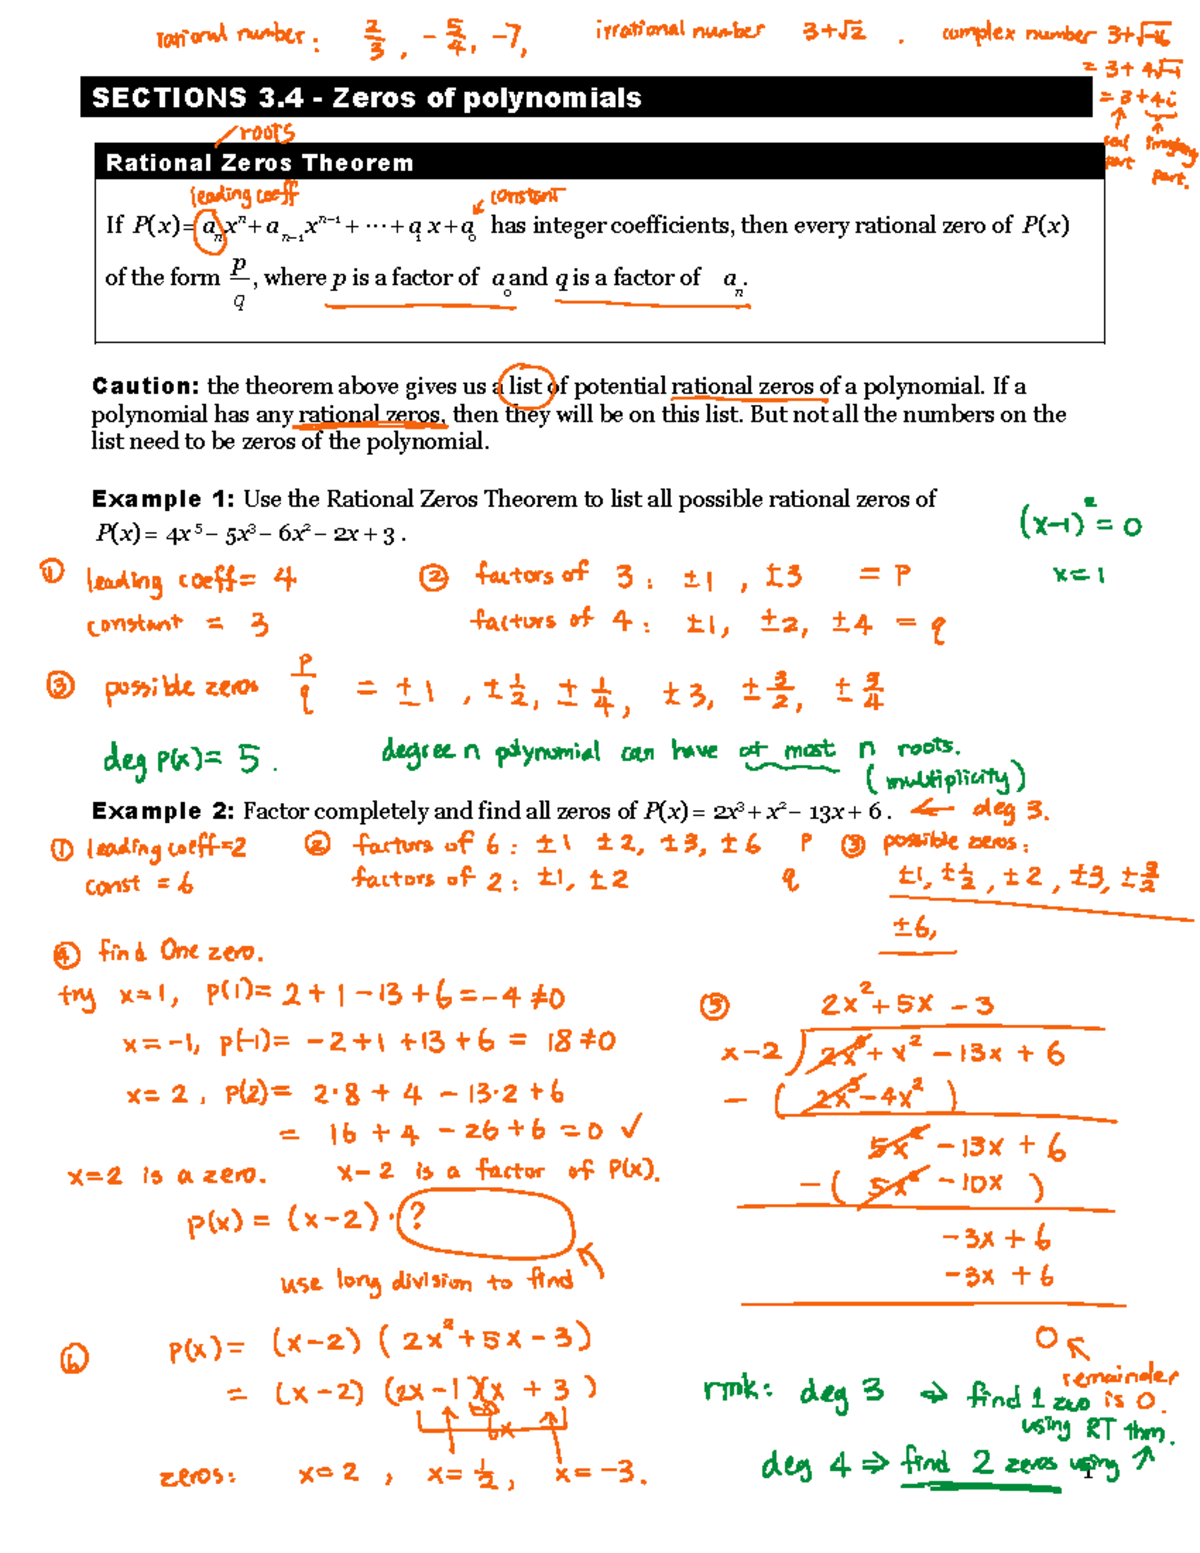 rational number: 2/3, -5/4, -7, irrational number 3+√2 . complex number 3+√-16
= 3+4√-1
= 3+4i
real part imaginary part.
SECTIONS 3.4 - Zeros of polynomials
roots
Rational Zeros Theorem
leading coeff constant
If P(x)= aₙxⁿ + aₙ₋₁xⁿ⁻¹ + ⋯ + a₁x + a₀ has integer coefficients, then every rational zero of P(x)
of the form p/q, where p is a factor of a₀ and q is a factor of aₙ.
Caution: the theorem above gives us a list of potential rational zeros of a polynomial. If a
polynomial has any rational zeros, then they will be on this list. But not all the numbers on the
list need to be zeros of the polynomial.
Example 1: Use the Rational Zeros Theorem to list all possible rational zeros of
P(x) = 4x⁵ – 5x³ – 6x² – 2x + 3 .
(x-1)² = 0
x = 1
① leading coeff = 4
constant = 3
② factors of 3 : ±1 , ±3 = P
factors of 4 : ±1, ±2, ±4 = q
③ possible zeros p/q = ±1 , ±1/2, ±1/4, ±3, ±3/2, ±3/4
deg P(x) = 5 .
degree n polynomial can have at most n roots.
(multiplicity)
Example 2: Factor completely and find all zeros of P(x) = 2x³ + x² – 13x + 6 . ← deg 3.
① leading coeff=2
const = 6
② factors of 6 : ±1 ±2, ±3, ±6 P
factors of 2 : ±1, ±2 q
③ possible zeros:
±1, ±1/2, ±2, ±3, ±3/2
±6,
④ find One zero.
try x=1, P(1)= 2+1-13+6=-4≠0
x=-1, P(-1)= -2+1+13+6 = 18≠0
x= 2, P(2)= 2·8 + 4 - 13·2 + 6
= 16 + 4 - 26+6 =0 ✓
x=2 is a zero. x-2 is a factor of P(x).
P(x) = (x-2) · ?
use long division to find
⑤ 2x²+5x - 3
x-2 ) 2x³ + x² - 13x + 6
- ( 2x³ - 4x² )
5x² - 13x + 6
- ( 5x² - 10x )
-3x + 6
-3x + 6
0
remainder
is 0.
⑥ P(x)= (x-2) ( 2x²+5x-3)
= (x-2) (2x-1)(x + 3 )
6x
zeros: x=2 , x=1/2, x=-3.
rmk: deg 3 ⇒ find 1 zero
using RT thm.
deg 4 ⇒ find 2 zeros using ↑